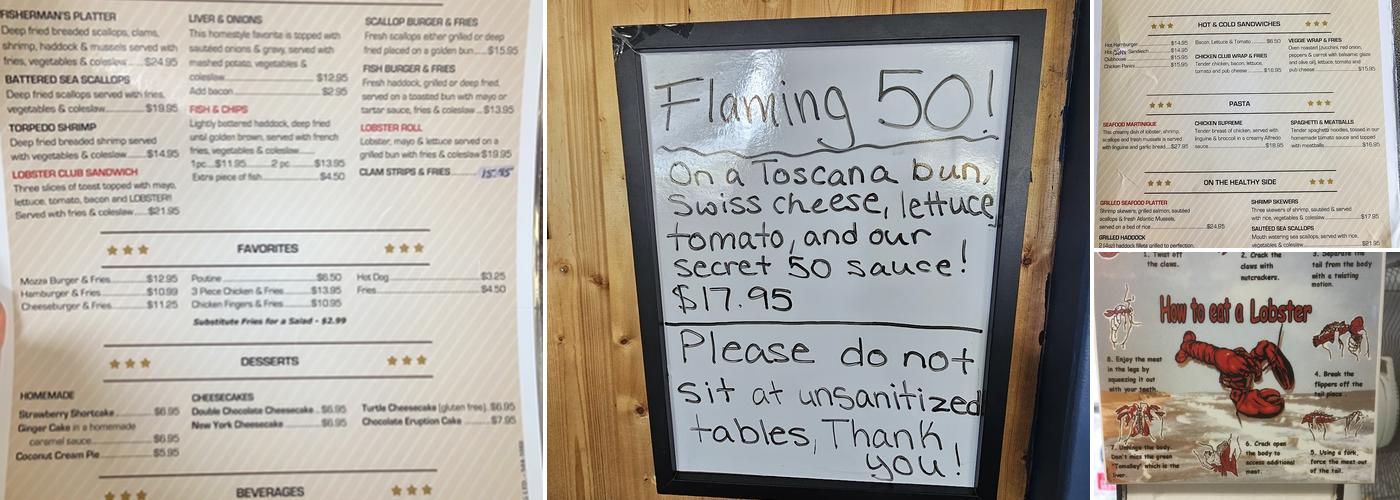 FISHERMAN'S PLATTER
Deep fried breaded scallops, clams,
shrimp, haddock & mussels served with
fries, vegetables & coleslaw.....$24.95
BATTERED SEA SCALLOPS
Deep fried scallops served with fries,
vegetables & coleslaw.....$19.95
TORPEDO SHRIMP
Deep fried breaded shrimp served
with vegetables & coleslaw.....$14.95
LOBSTER CLUB SANDWICH
Three slices of toast topped with mayo,
lettuce, tomato, bacon and LOBSTER!!
Served with fries & coleslaw.....$21.95
LIVER & ONIONS
This homestyle favorite is topped with
sautéed onions & gravy, served with
mashed potato, vegetables &
coleslaw.....$12.95
Add bacon.....$2.95
FISH & CHIPS
Lightly battered haddock, deep fried
until golden brown, served with french
fries, vegetables & coleslaw.....
1pc...$11.95 2 pc.....$13.95
Extra piece of fish.....$4.50
SCALLOP BURGER & FRIES
Fresh scallops either grilled or deep
fried placed on a golden bun.....$15.95
FISH BURGER & FRIES
Fresh haddock, grilled or deep fried,
served on a toasted bun with mayo or
tartar sauce, fries & coleslaw...$13.95
LOBSTER ROLL
Lobster, mayo & lettuce served on a
grilled bun with fries & coleslaw $19.95
CLAM STRIPS & FRIES.....15.95
FAVORITES
Mozza Burger & Fries.....$12.95
Hamburger & Fries.....$10.99
Cheeseburger & Fries.....$11.25
Poutine.....$6.50
3 Piece Chicken & Fries.....$13.95
Chicken Fingers & Fries.....$10.95
Hot Dog.....$3.25
Fries.....$4.50
Substitute Fries for a Salad - $2.99
DESSERTS
HOMEMADE
Strawberry Shortcake.....$6.95
Ginger Cake in a homemade
caramel sauce.....$6.95
Coconut Cream Pie.....$5.95
CHEESECAKES
Double Chocolate Cheesecake..$6.95
New York Cheesecake.....$6.95
Turtle Cheesecake (gluten free).$6.95
Chocolate Eruption Cake.....$7.95
BEVERAGES
Flaming 50!
On a Toscana bun,
Swiss cheese, lettuce
tomato, and our
secret 50 sauce!
$17.95
Please do not
sit at unsanitized
tables, Thank
you!
HOT & COLD SANDWICHES
Hot Hamburger.....$14.95
Hot Sandwich.....$14.95
Clubhouse.....$15.95
Chicken Panini.....$15.95
Bacon, Lettuce & Tomato.....$6.50
CHICKEN CLUB WRAP & FRIES
Tender chicken, bacon, lettuce,
tomato and pub cheese.....$16.95
VEGGIE WRAP & FRIES
Oven roasted (zucchini, red onion,
peppers & carrot with balsamic glaze
and olive oil), lettuce, tomato and
pub cheese.....$15.95
PASTA
SEAFOOD MARTINIQUE
This creamy dish of lobster, shrimp,
scallops and fresh mussels is served
with linguine and garlic bread...$27.95
CHICKEN SUPREME
Tender breast of chicken, served with
linguine & broccoli in a creamy Alfredo
sauce.....$18.95
SPAGHETTI & MEATBALLS
Tender spaghetti noodles, tossed in our
homemade tomato sauce and topped
with meatballs.....$16.95
ON THE HEALTHY SIDE
GRILLED SEAFOOD PLATTER
Shrimp skewers, grilled salmon, sautéed
scallops & fresh Atlantic Mussels,
served on a bed of rice.....$24.95
GRILLED HADDOCK
2 (4oz) haddock fillets grilled to perfection,
SHRIMP SKEWERS
Three skewers of shrimp, sautéed & served
with rice, vegetables & coleslaw.....$17.95
SAUTÉED SEA SCALLOPS
Mouth watering sea scallops, served with rice,
vegetables & coleslaw.....$21.95
1. Twist off
the claws.
2. Crack the
claws with
nutcrackers.
3. Separate the
tail from the body
with a twisting
motion.
How to eat a Lobster
8. Enjoy the meat
in the legs by
squeezing it out
with your teeth.
4. Break the
flippers off the
tail piece.
7. Unhinge the body.
Don't miss the green
"Tomalley" which is the
liver.
6. Crack open
the body to
access additional
meat.
5. Using a fork,
force the meat out
of the tail.